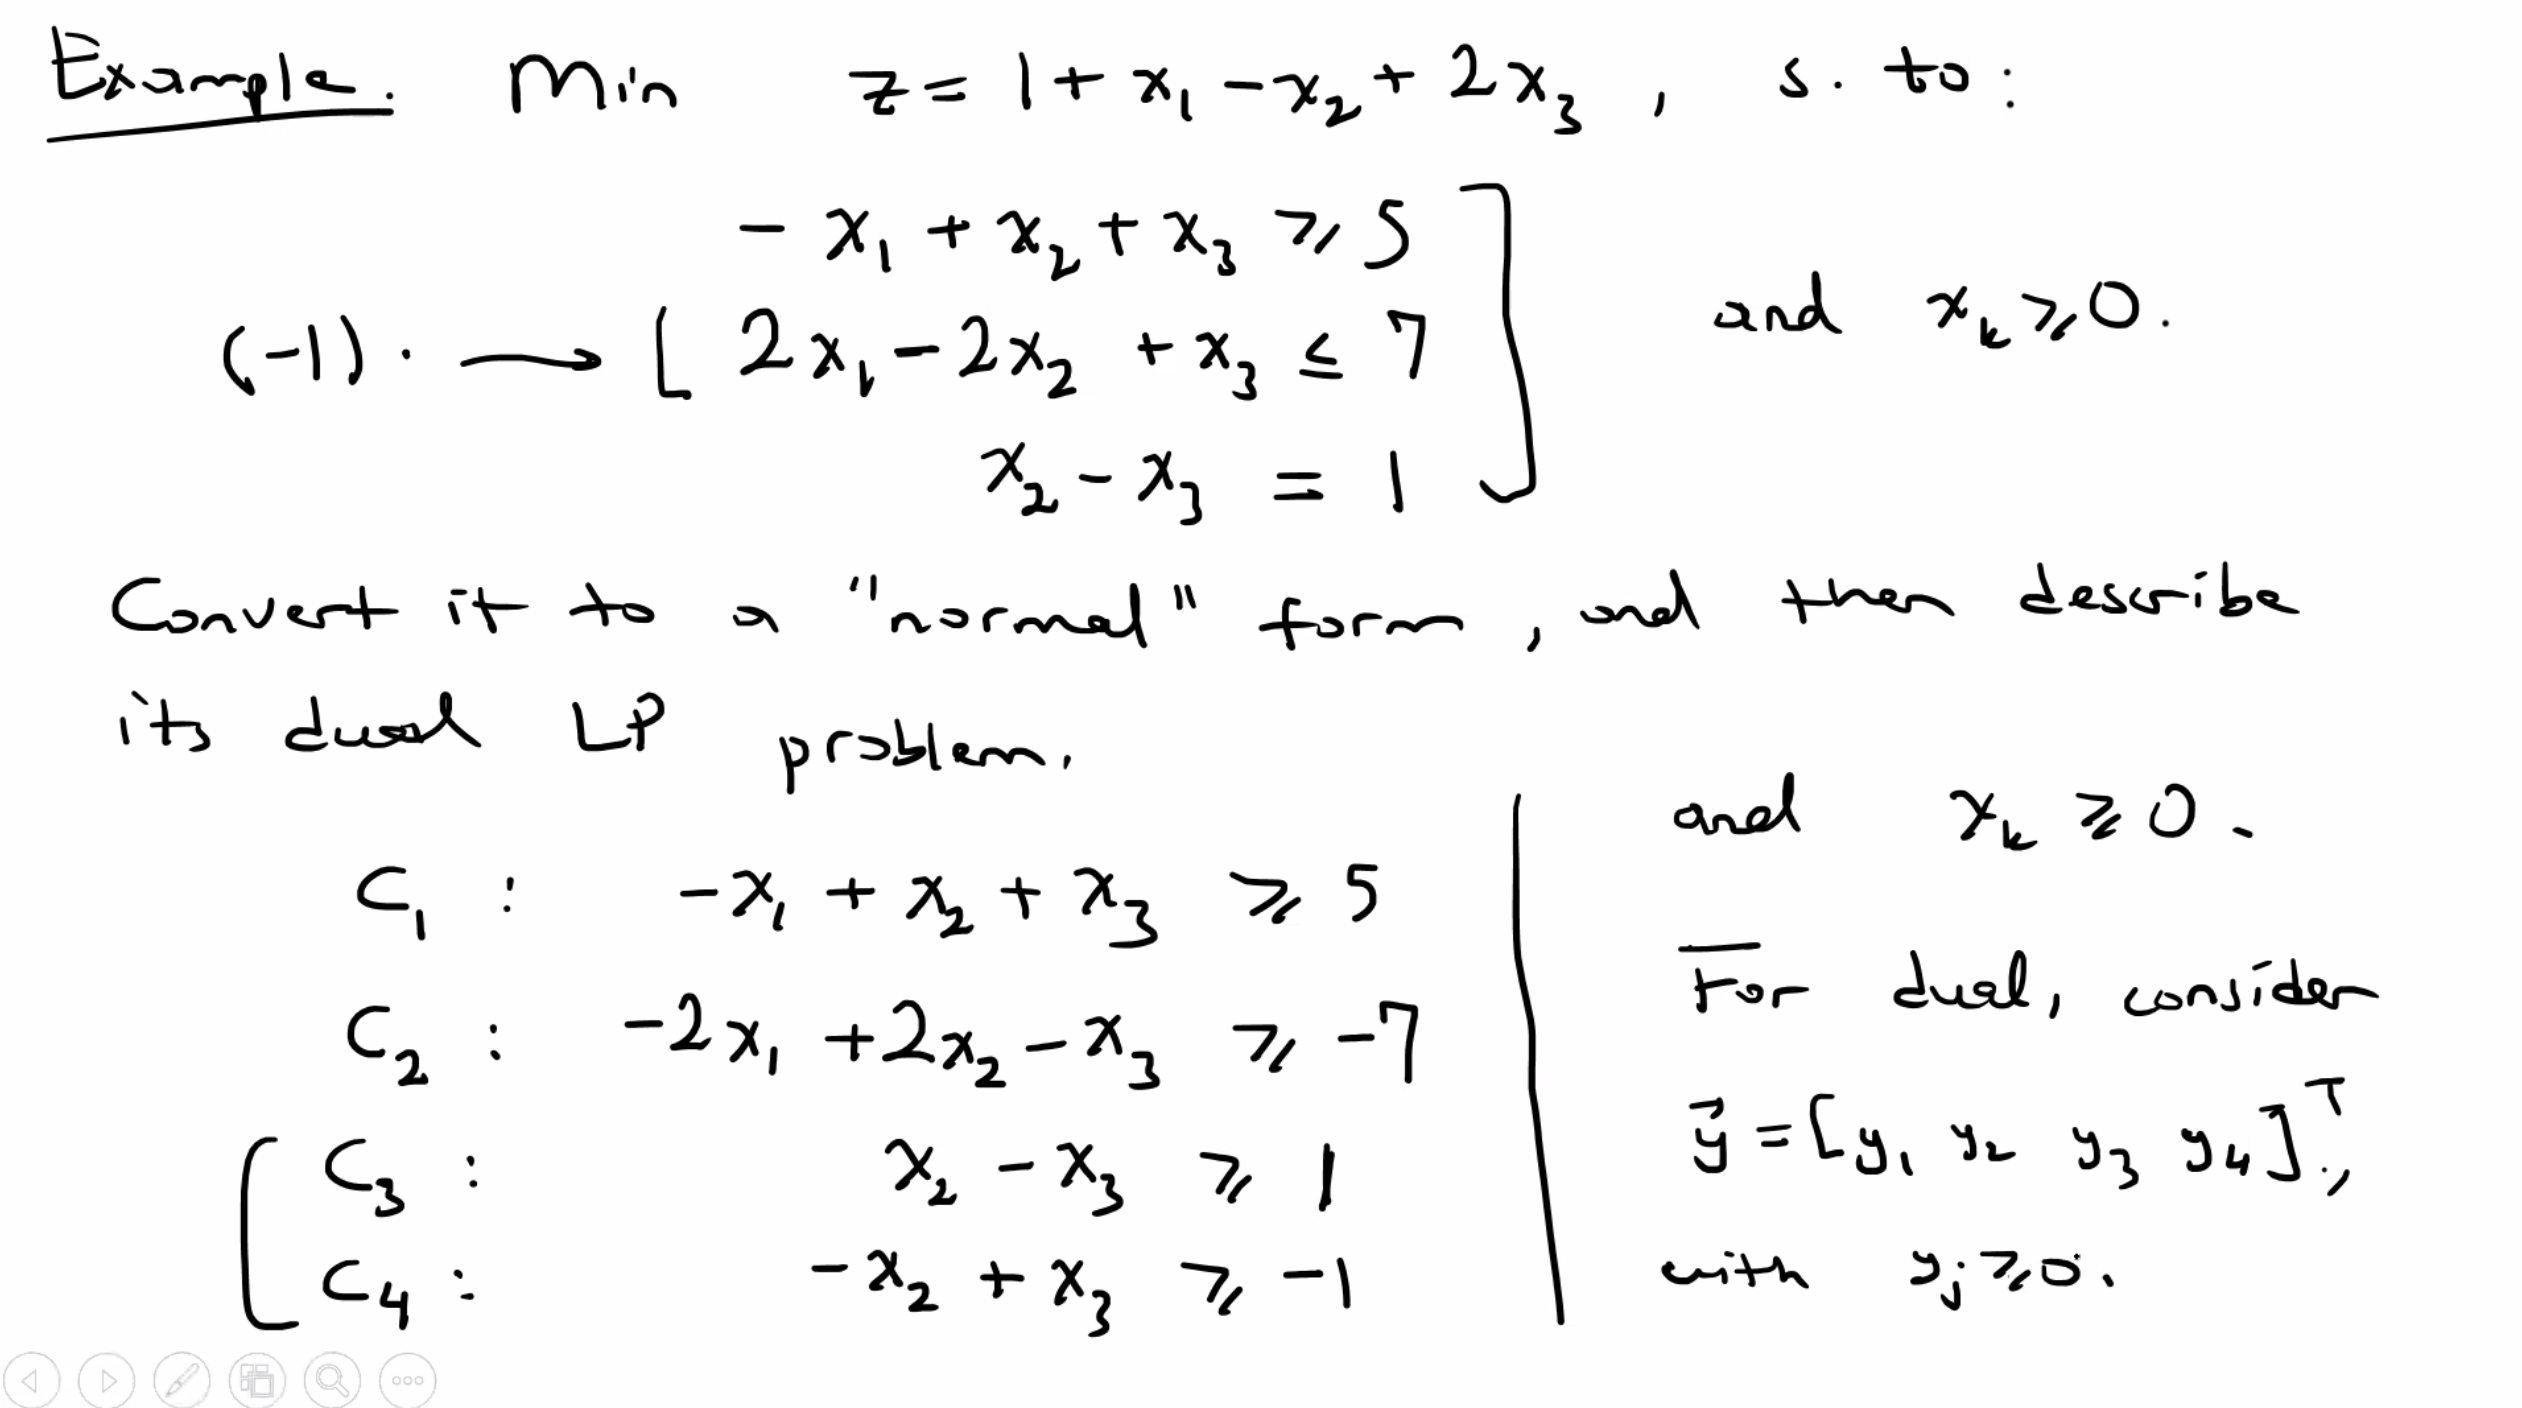 Example. Min z = 1 + x₁ - x₂ + 2x₃ , s. to :
- x₁ + x₂ + x₃ ⩾ 5
(-1) · ⟶ [ 2x₁ - 2x₂ + x₃ ≤ 7
x₂ - x₃ = 1
] and xₖ ⩾ 0.
Convert it to a "normal" form, and then describe
its dual LP problem.
C₁ : -x₁ + x₂ + x₃ ⩾ 5
C₂ : -2x₁ + 2x₂ - x₃ ⩾ -7
C₃ : x₂ - x₃ ⩾ 1
C₄ : -x₂ + x₃ ⩾ -1
and xₖ ⩾ 0.
For dual, consider
y⃗ = [y₁ y₂ y₃ y₄]ᵀ,
with yⱼ ⩾ 0.